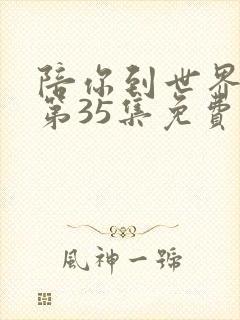 陪你到世界
第35集免費
風神一號